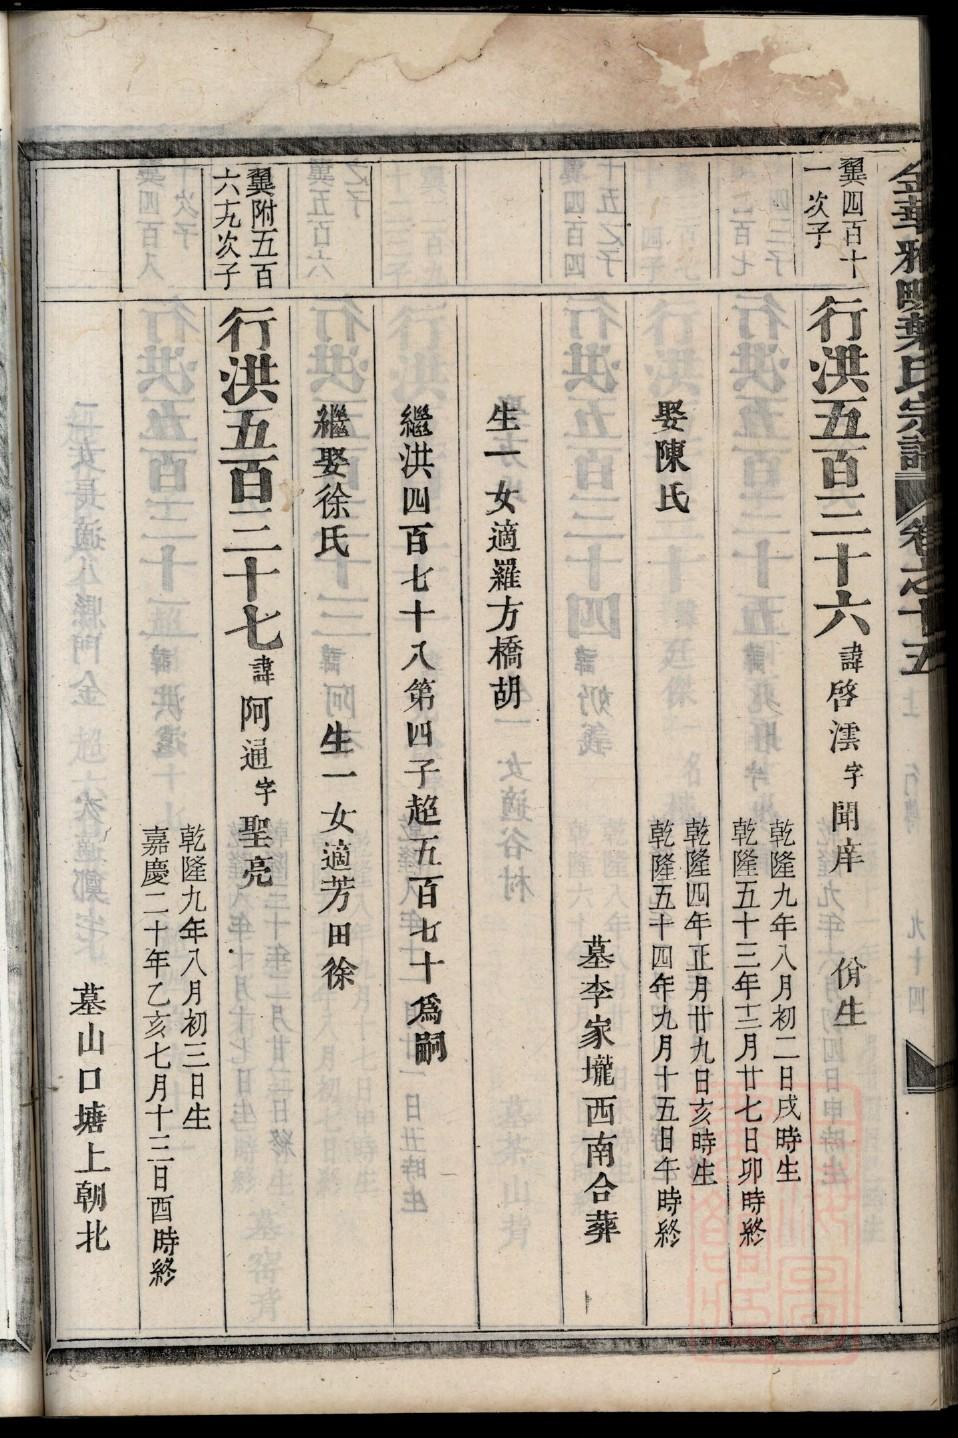 金華雅畈葉氏宗譜 卷之十五
翼四百十
一次子
行洪五百三十六 諱啓澐字聞庠 佾生
乾隆九年八月初二日戌時生
乾隆五十三年十二月廿七日卯時終
娶陳氏
乾隆四年正月廿九日亥時生
乾隆五十四年九月十五日午時終
墓李家壠西南合葬
生一女適羅方橋胡
繼洪四百七十八第四子超五百七十爲嗣
繼娶徐氏 生一女適芳田徐
翼附五百
六十九次子
行洪五百三十七 諱阿通字聖亮
乾隆九年八月初三日生
嘉慶二十年乙亥七月十三日酉時終
墓山口塘上朝北